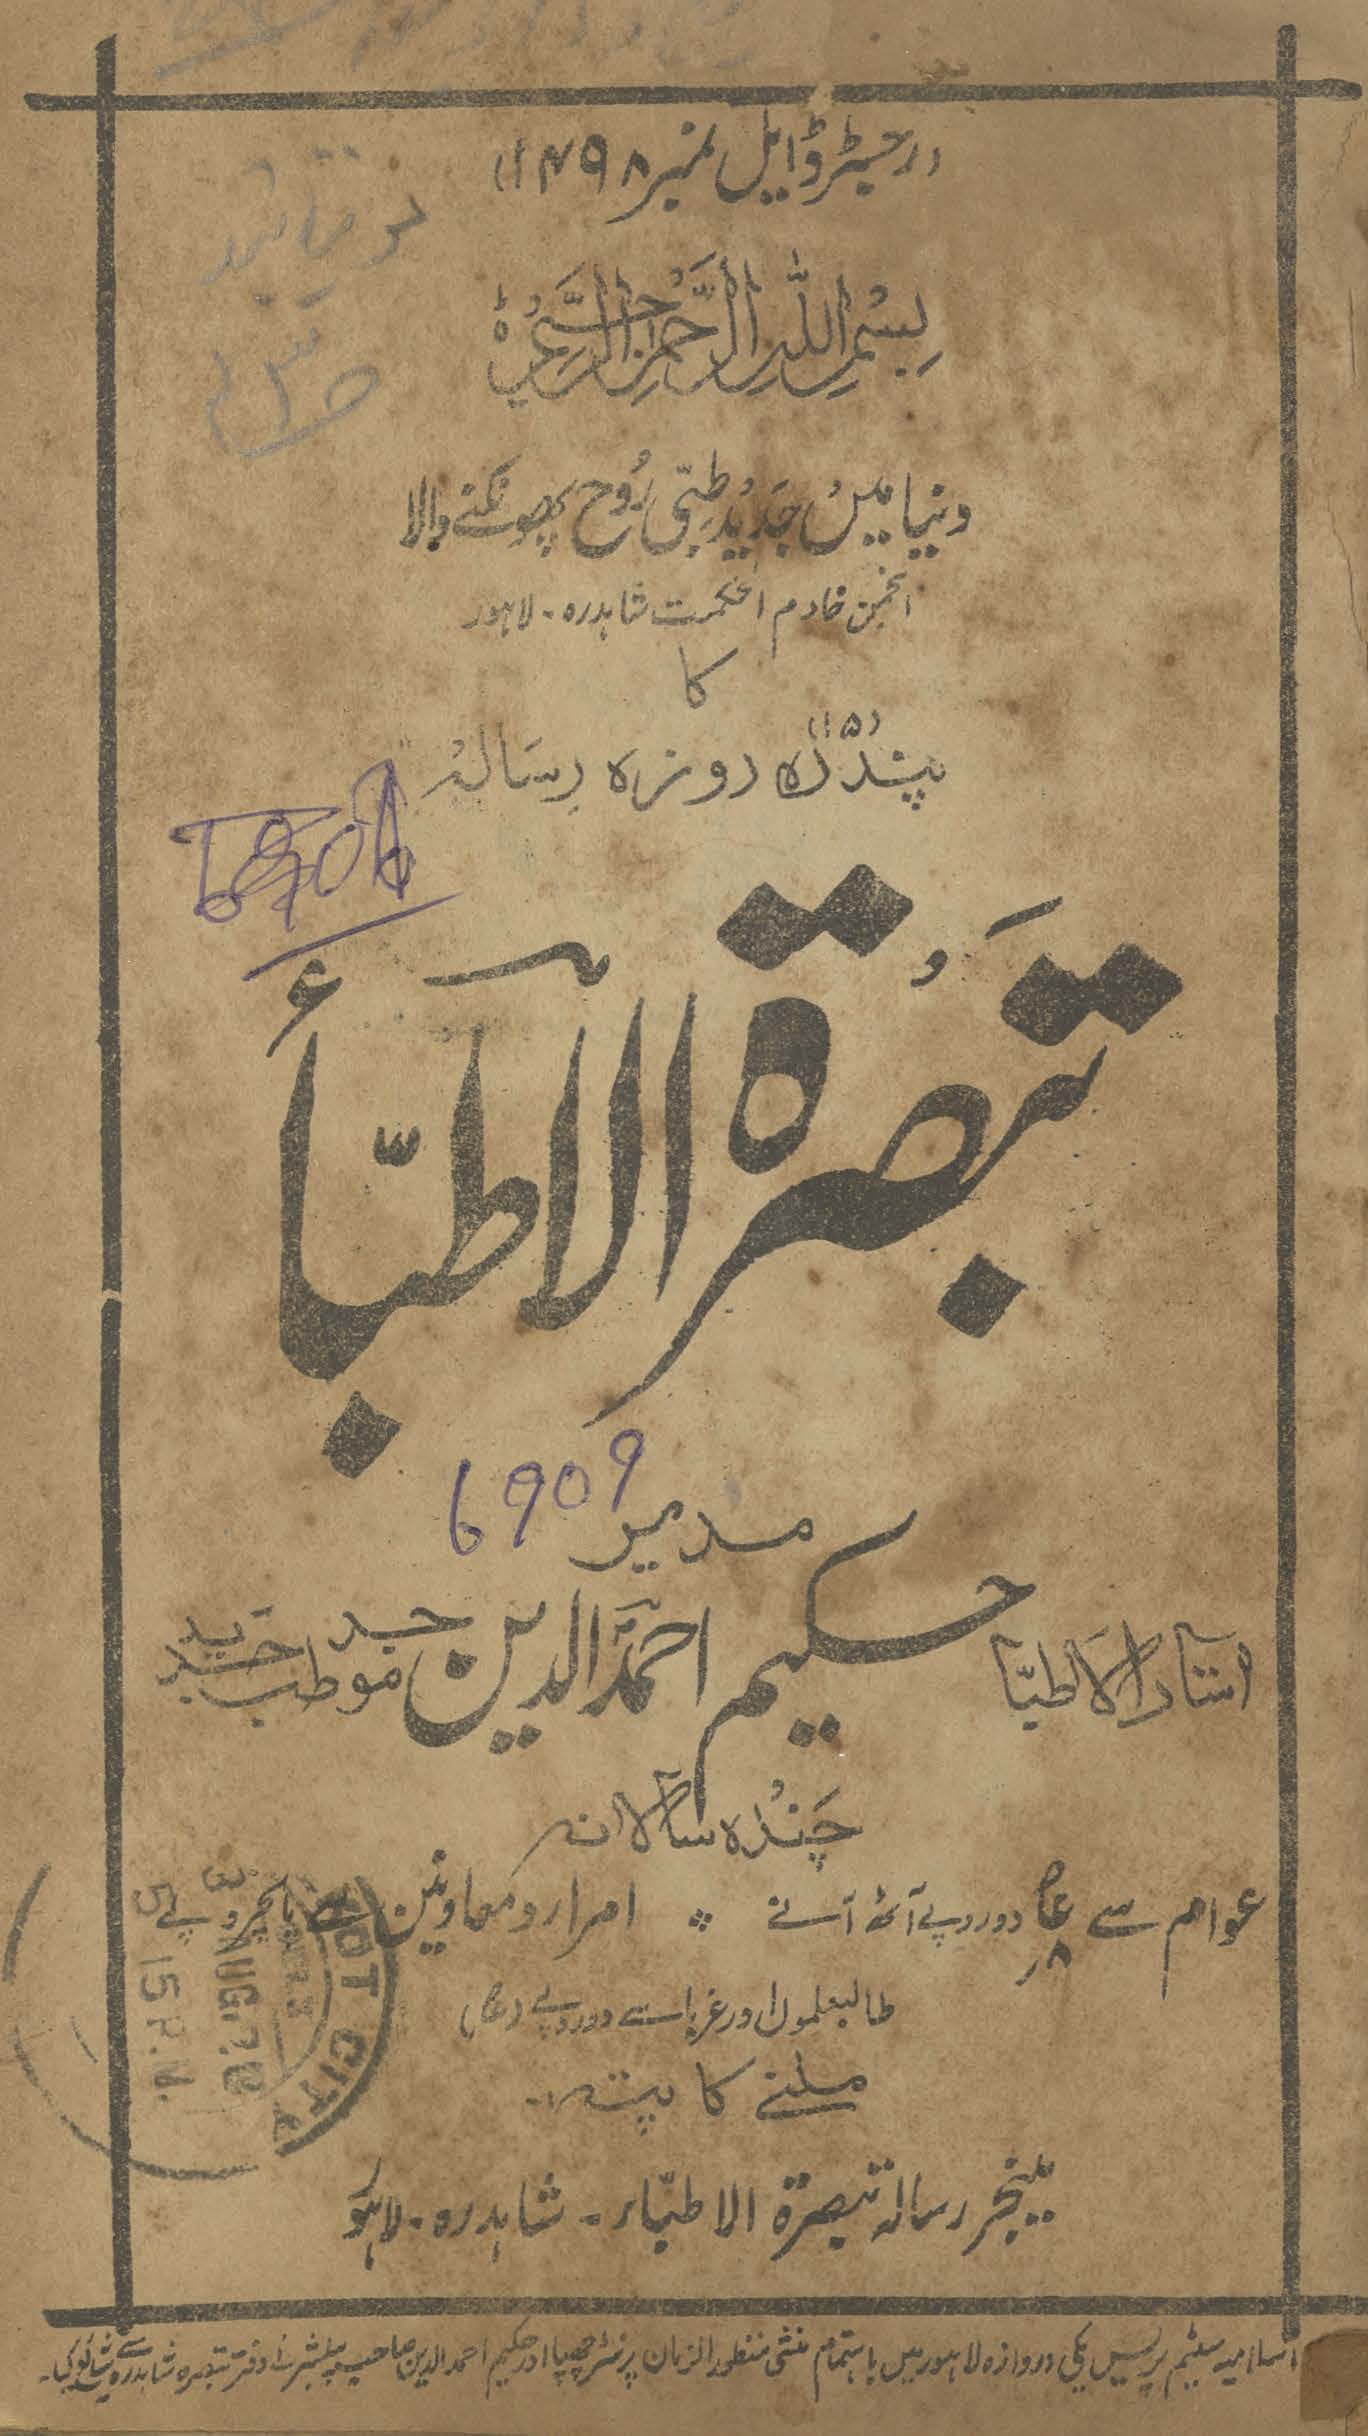 (رجسٹرڈ ایل نمبر ۱۴۹۸)
بِسْمِ اللّٰہِ الرَّحْمٰنِ الرَّحِیْمِ
دنیا میں جدید طبّی رُوح پھونکنے والا
انجمن خادم الحکمت شاہدرہ - لاہور
کا
(۱۵)
پندرہ روزہ رسالہ
تَبصُرۃ الآطبّاء
6909
مدیر
استاد الاطبّا حکیم احمد الدین موجد طب جدید
چندہ سالانہ
عوام سے دو روپے آٹھ آنے ۸؍ امرار و معاونین سے پانچ روپے
طالبعلموں اور غربا سے دو روپے
ملنے کا پتہ:-
مینیجر رسالہ تبصرۃ الاطبّاء - شاہدرہ - لاہور
اسلامیہ سٹیم پریس یکی دروازہ لاہور میں باہتمام منشی منظور الزمان پرنٹر چھپا اور حکیم احمد الدین صاحب پبلشر نے دفتر تبصرہ شاہدرہ سے شائع کیا۔
CITY
3 AUG.
5 15 P.M.